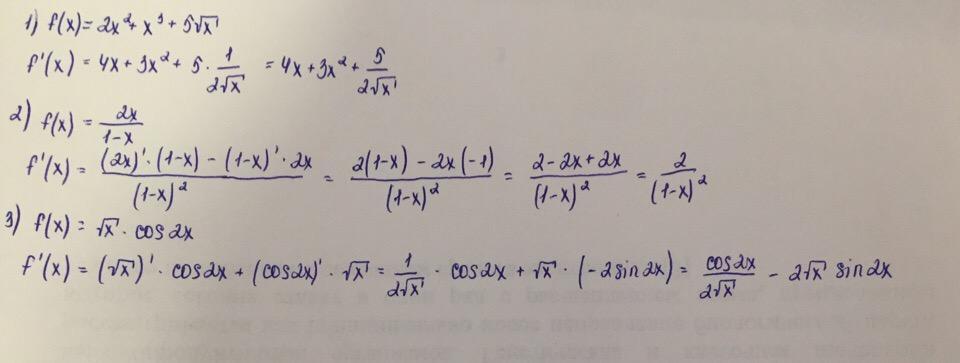 1) f(x) = 2x² + x³ + 5√x
f'(x) = 4x + 3x² + 5 · 1/(2√x) = 4x + 3x² + 5/(2√x)
2) f(x) = 2x/(1-x)
f'(x) = ((2x)' · (1-x) - (1-x)' · 2x)/(1-x)² = (2(1-x) - 2x(-1))/(1-x)² = (2-2x+2x)/(1-x)² = 2/(1-x)²
3) f(x) = √x · cos2x
f'(x) = (√x)' · cos2x + (cos2x)' · √x = 1/(2√x) · cos2x + √x · (-2sin2x) = cos2x/(2√x) - 2√x sin2x